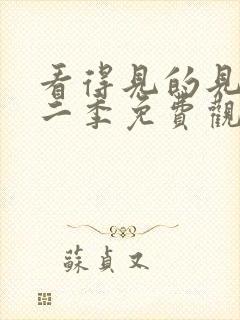 看得見的見
二季免費觀
蘇貞又